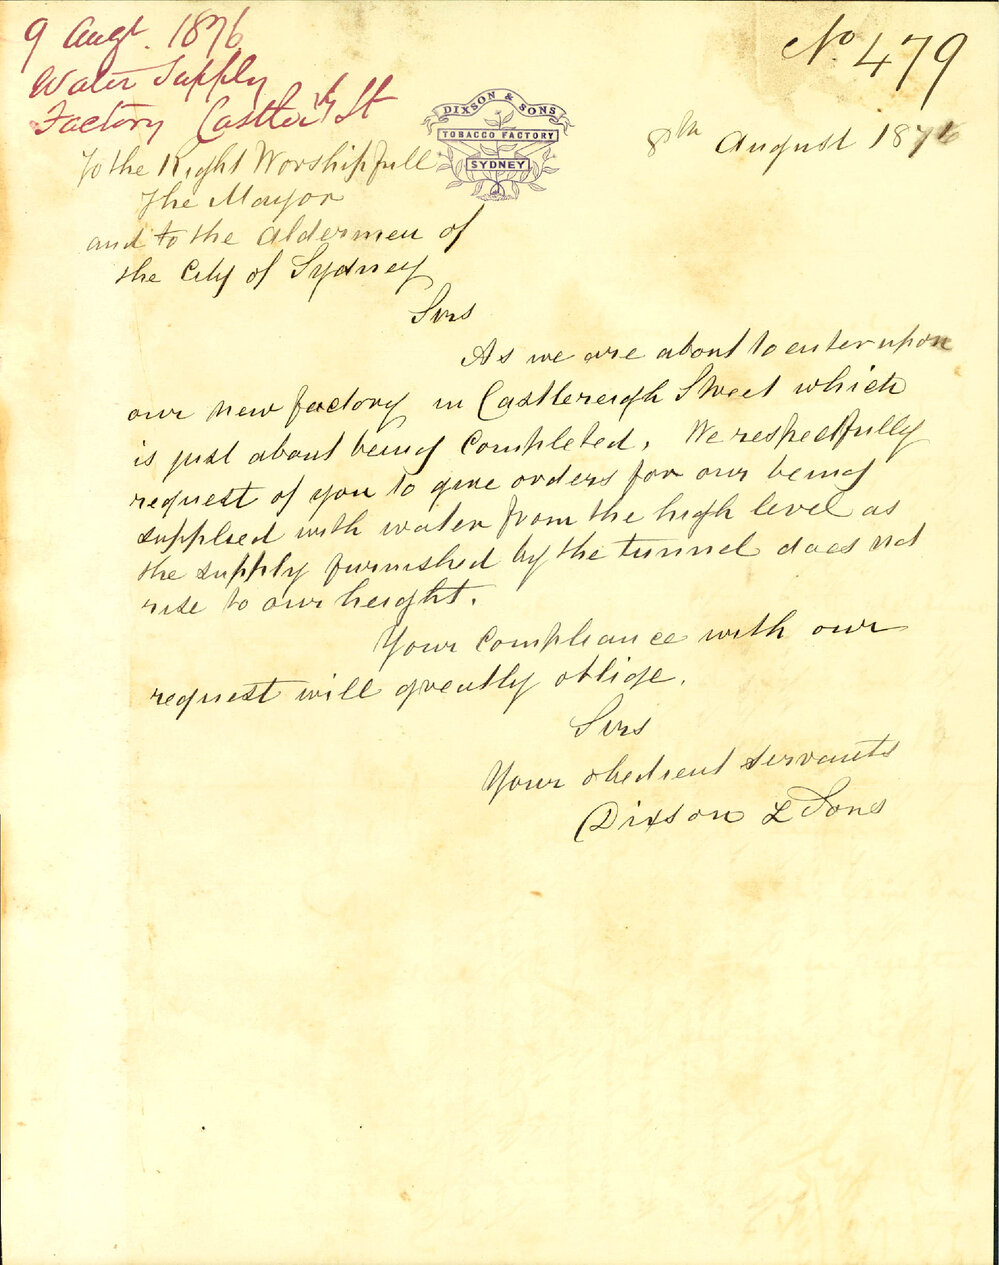 9 Augt. 1876
Water Supply
Factory Castler'gh St
No 479
DIXSON & SONS
TOBACCO FACTORY
SYDNEY
8th August 1876
To the Right Worshipfull
The Mayor
and to the Aldermen of
the City of Sydney
Sirs
As we are about to enter upon
our new factory in Castlereigh Street which
is just about being Completed. We respectfully
request of you to give orders for our being
supplied with water from the high level as
the supply furnished by the tunnel does not
rise to our height.
Your Compliance with our
request will greatly oblige.
Sirs
Your obedient servants
Dixson & Sons